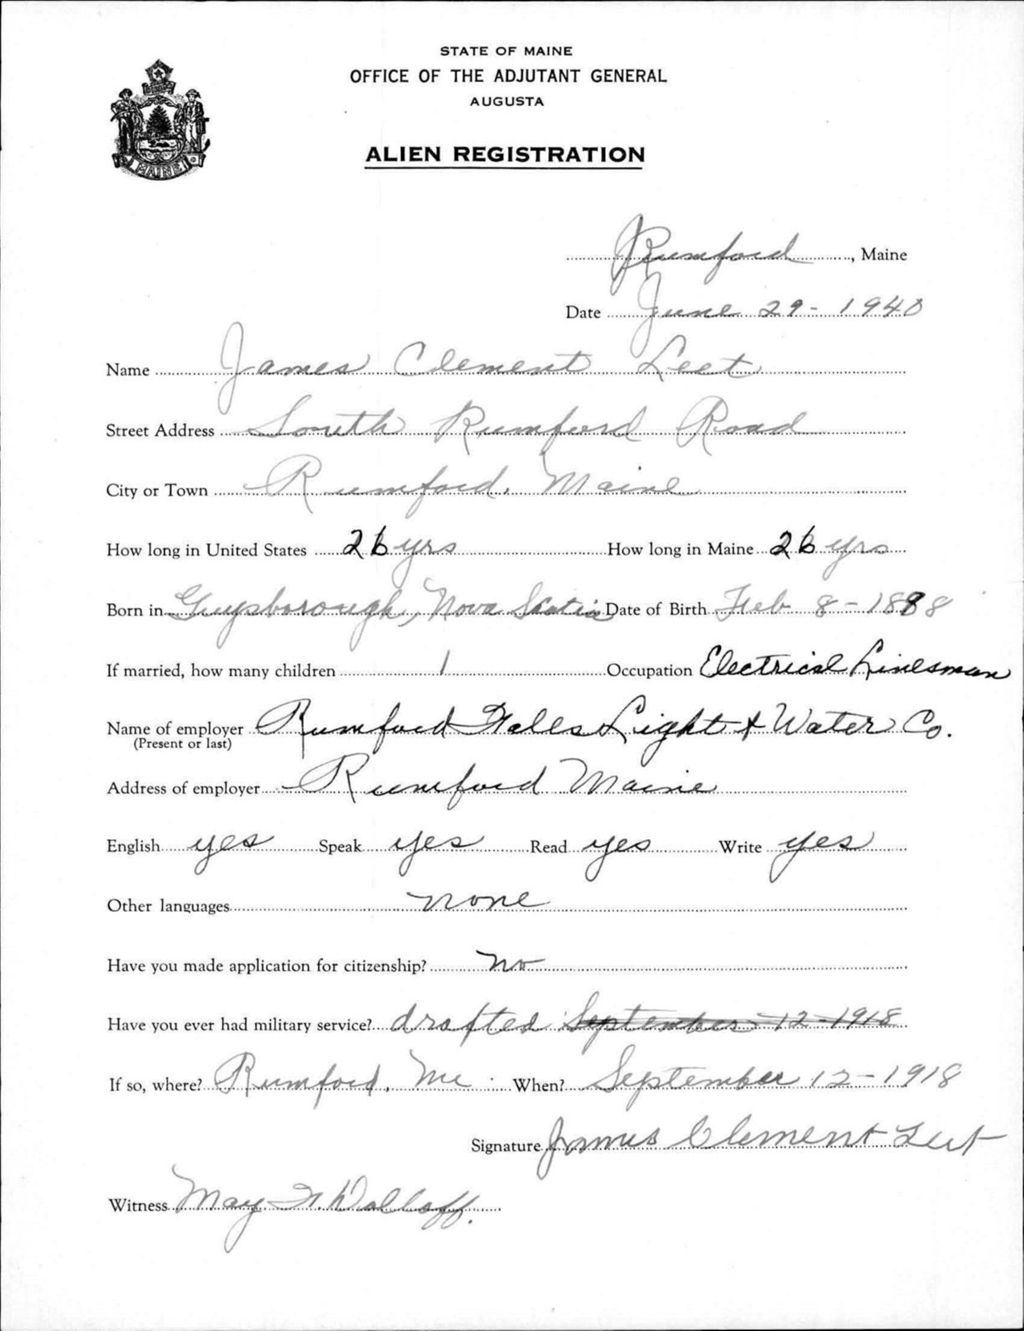 STATE OF MAINE
OFFICE OF THE ADJUTANT GENERAL
AUGUSTA
ALIEN REGISTRATION
MAINE
Rumford, Maine
Date June 29 - 1940
Name James Clement Leet
Street Address South Rumford Road
City or Town Rumford, Maine
How long in United States 26 yrs How long in Maine 26 yrs
Born in Guysborough, Nova Scotia Date of Birth Feb 8 - 1888
If married, how many children 1 Occupation Electrical Linesman
Name of employer Rumford Falls Light & Water Co.
(Present or last)
Address of employer Rumford Maine
English yes Speak yes Read yes Write yes
Other languages none
Have you made application for citizenship? no
Have you ever had military service? drafted September 12 - 1918
If so, where? Rumford, Me. When? September 12 - 1918
Signature James Clement Leet
Witness May